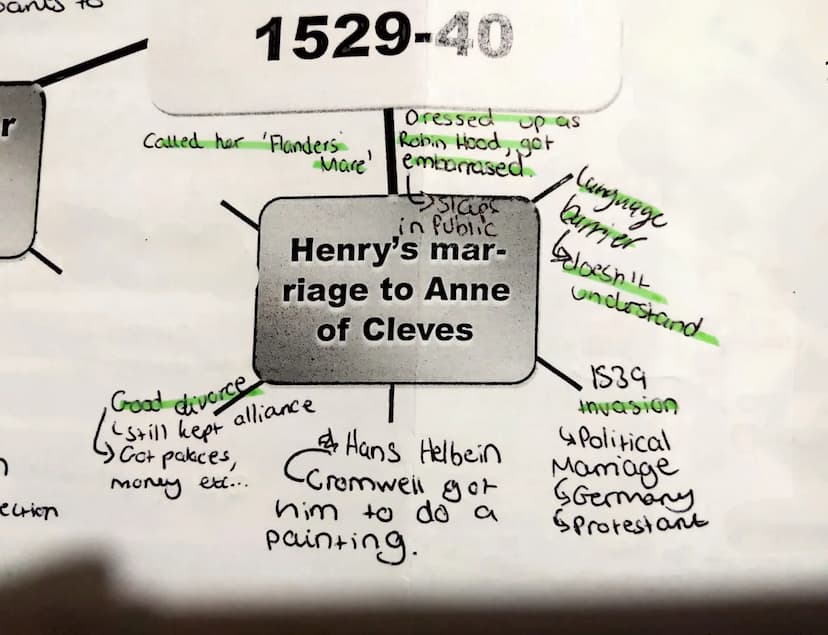 1529-40
r
Called her 'Flanders
Mare'
Dressed up as
Robin Hood, got
embarrased.
↳slaps
in Public
Language
barrier
↳doesn't
understand
Henry's mar-
riage to Anne
of Cleves
Good divorce
↳still kept alliance
↳Got palaces,
money etc...
Hans Helbein
Cromwell got
him to do a
painting.
1539
invasion
↳Political
Marriage
↳Germany
↳Protestant